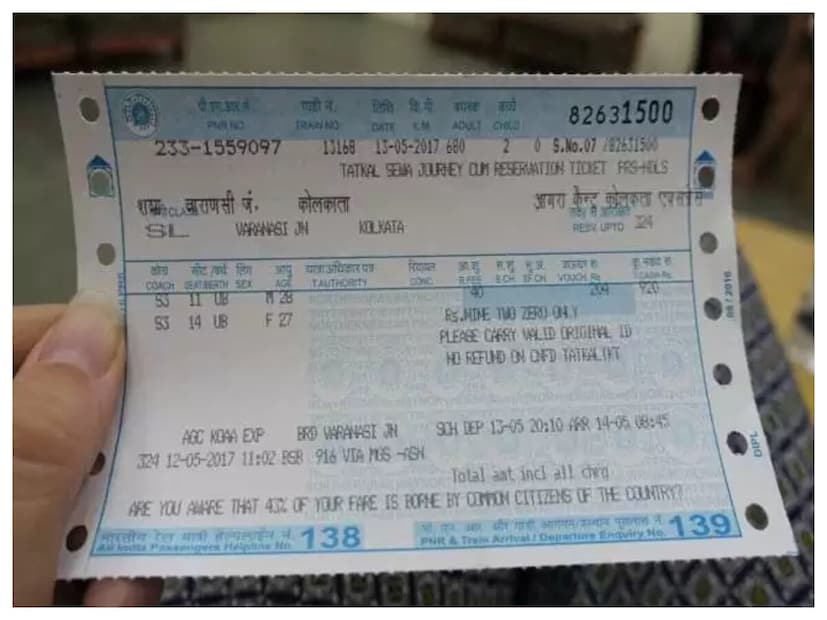 पी.एन.आर नं. गाड़ी नं. तिथि कि.मी. वयस्क बच्चे 82631500
PNR NO. TRAIN NO. DATE K.M. ADULT CHILD
233-1559097 13168 13-05-2017 680 2 0 S.No.07 /82631500
TATKAL SEWA JOURNEY CUM RESERVATION TICKET PRS-NDLS
वाराणसी जं. कोलकाता आगरा कैन्ट कोलकाता एक्सप्रेस
CLASS
SL VARANASI JN KOLKATA RESV. UPTO 324
कोच सीट/बर्थ लिंग आयु यात्रा अधिकार पत्र रियायत आ.शु. स.शु. सु.अ. वाऊचर रु. कु. नकद रु.
COACH SEAT/BERTH SEX AGE T.AUTHORITY CONC. R.FEE S.CH SF.CH VOUCH. Rs T.CASH Rs.
S3 11 UB M 28 40 204 920
S3 14 UB F 27 Rs.NINE TWO ZERO ONLY
PLEASE CARRY VALID ORIGINAL ID
NO REFUND ON CNFD TATKALTKT
08 / 2016
AGC KOAA EXP BRD VARANASI JN SCH DEP 13-05 20:10 ARR 14-05 08:45
324 12-05-2017 11:02 BSB 916 VIA MGS -ASN
Total amt incl all chrg
DIPL
ARE YOU AWARE THAT 43% OF YOUR FARE IS BORNE BY COMMON CITIZENS OF THE COUNTRY?
भारतीय रेल यात्री हेल्पलाईन नं. 138
All India Passengers Helpline No.
पी. एन. आर. और गाड़ी आगमन/प्रस्थान पूछताछ नं. 139
PNR & Train Arrival / Departure Enquiry No.